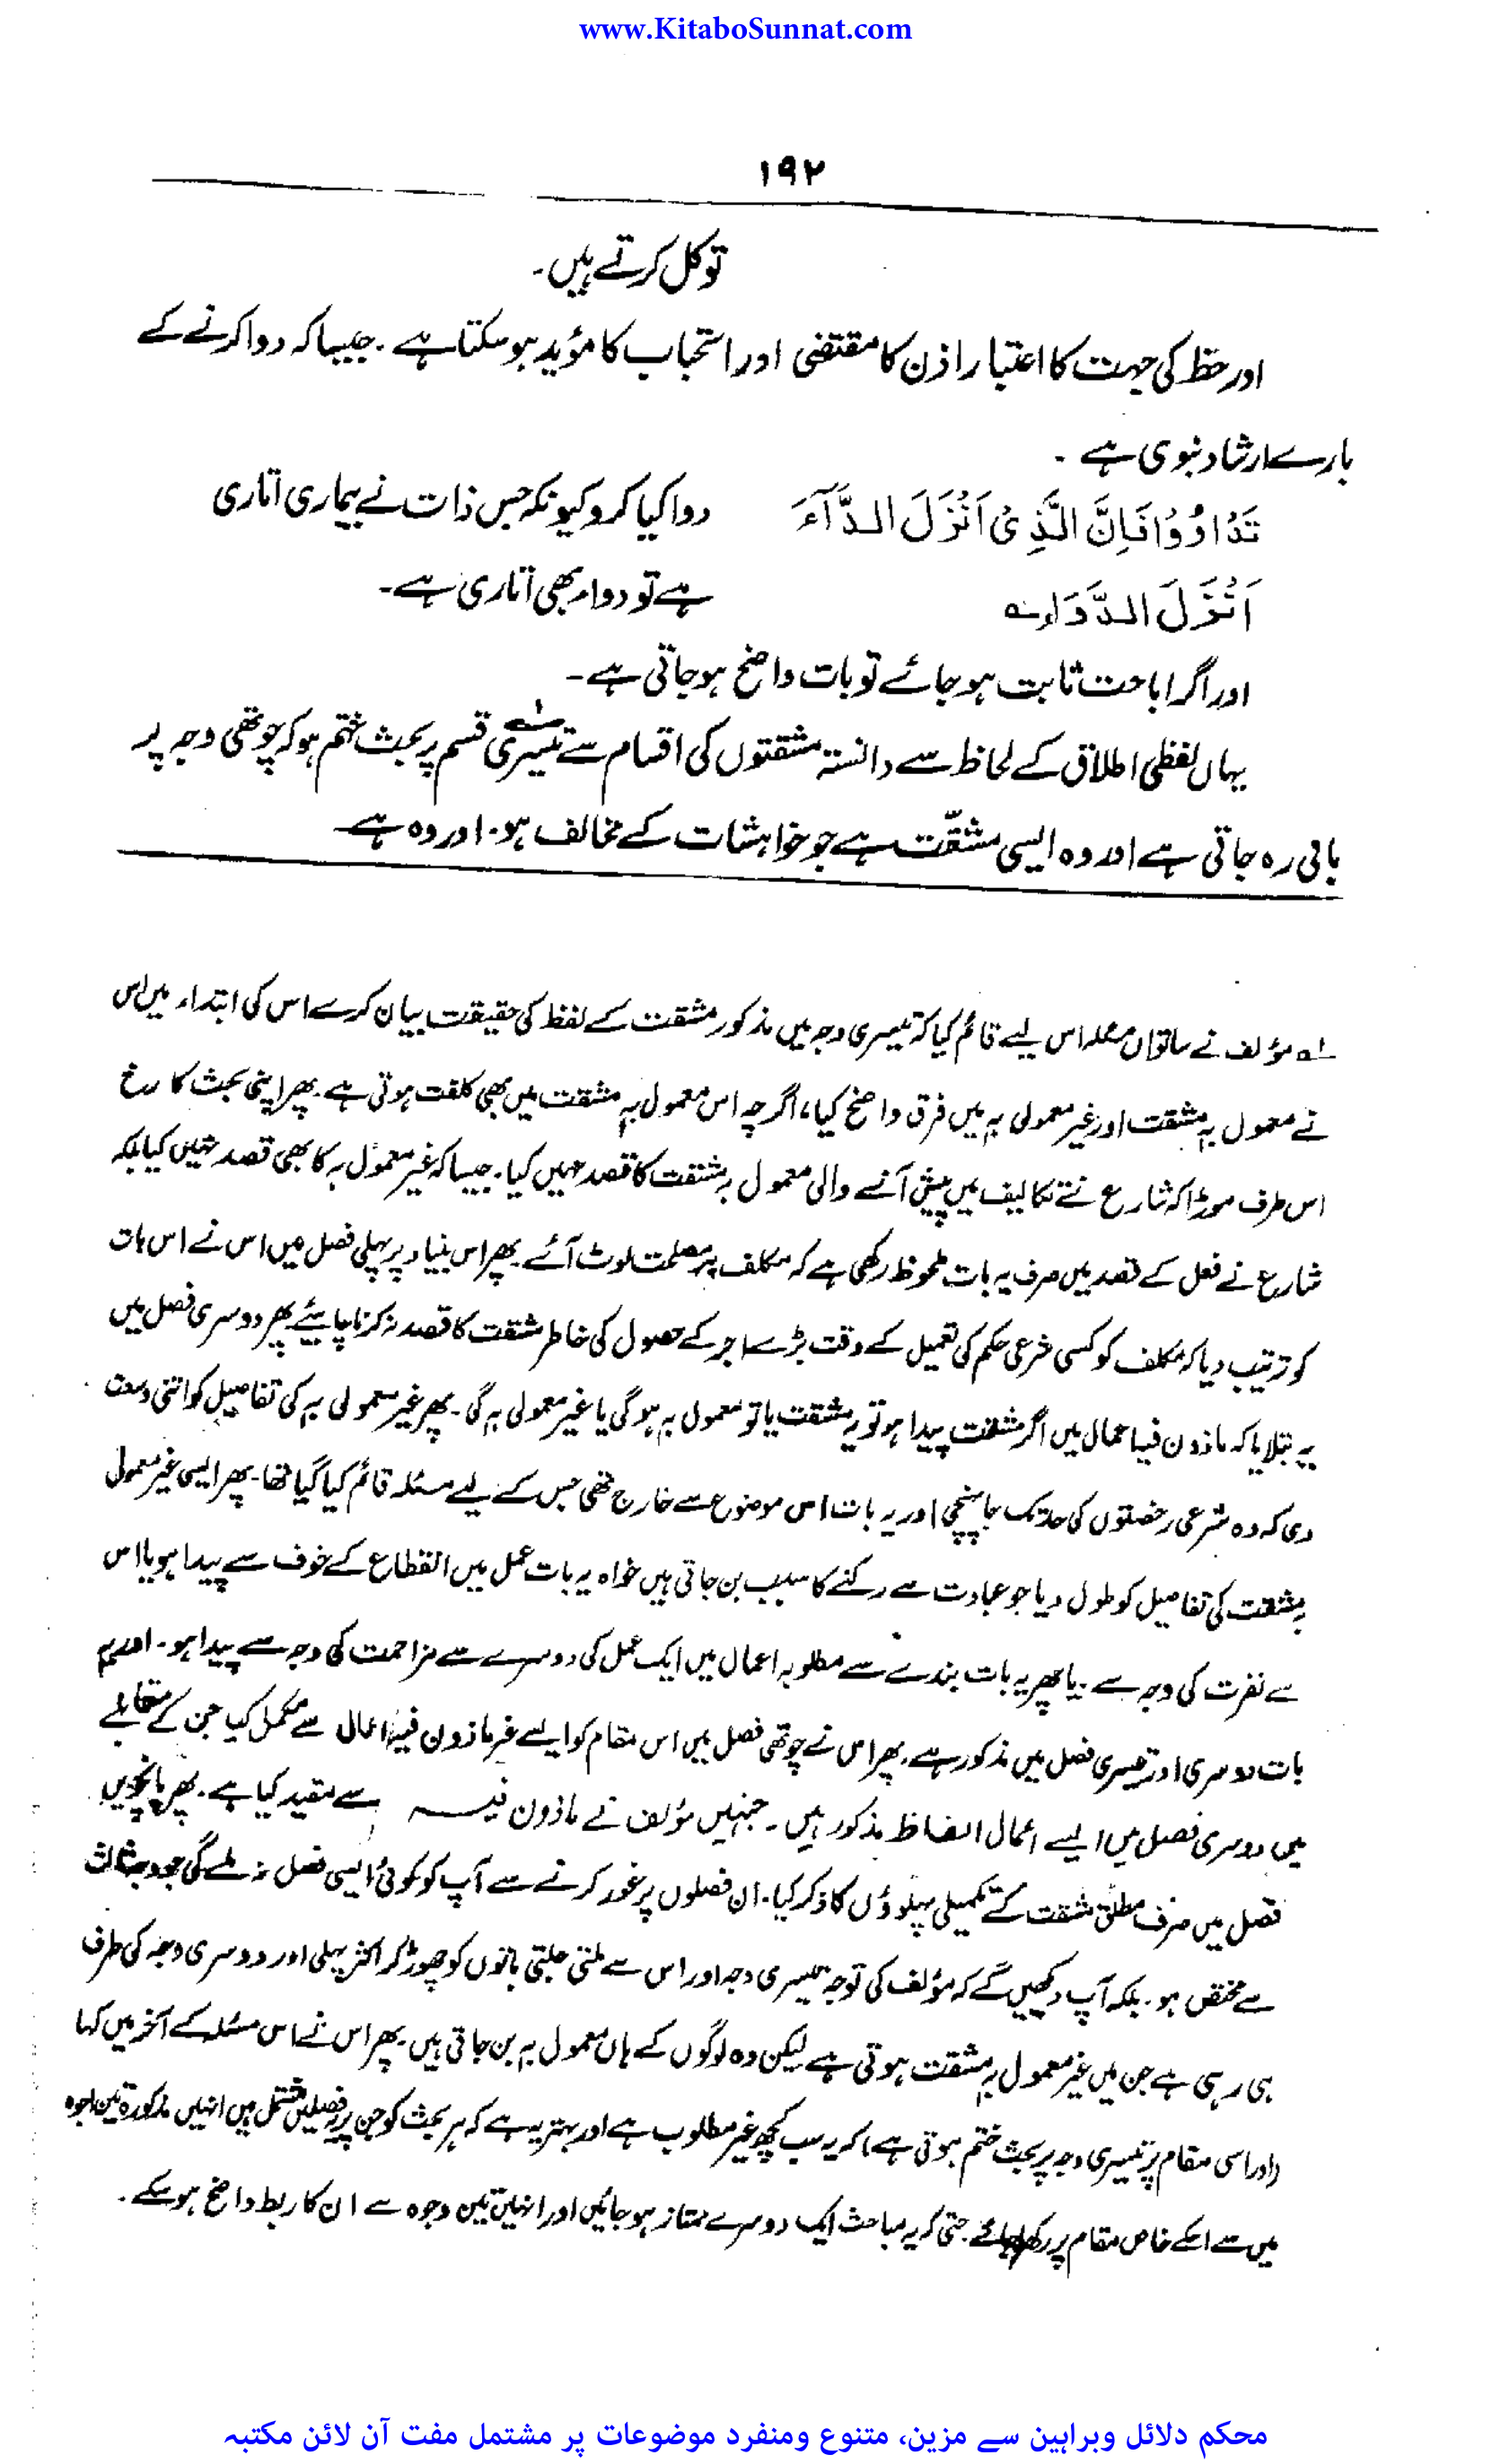 www.KitaboSunnat.com
۱۹۲
توکل کرتے ہیں۔
اور حظ کی جہت کا اعتبار اذن کا مقتضی اور استحباب کا مؤید ہو سکتا ہے۔ جیسا کہ دوا کرنے کے
بارے ارشاد نبوی ہے۔
تَدَاوُوْا فَاِنَّ الَّذِیْ اَنْزَلَ الدَّآءَ
دوا کیا کرو کیونکہ جس ذات نے بیماری اتاری
اَنْزَلَ الدَّوَاء
ہے تو دواء بھی اتاری ہے۔
اور اگر اباحت ثابت ہو جائے تو بات واضح ہو جاتی ہے۔
یہاں لفظی اطلاق کے لحاظ سے دانستہ مشقتوں کی اقسام سے تیسری قسم پر بحث ختم ہو کر چوتھی وجہ پر
باقی رہ جاتی ہے اور وہ ایسی مشقّت ہے جو خواہشات کے مخالف ہو۔ اور وہ ہے
لہ مؤلف نے ساتواں مسئلہ اس لیے قائم کیا کہ تیسری وجہ میں مذکور مشقت کے لفظ کی حقیقت بیان کرے اس کی ابتداء میں اس
نے معمول بہ مشقت اور غیر معمولی بہ میں فرق واضح کیا، اگرچہ اس معمول بہ مشقت میں بھی کلفت ہوتی ہے۔ پھر اپنی بحث کا رخ
اس طرف موڑا کہ شارع نے تکالیف میں پیش آنے والی معمول بہ مشقت کا قصد نہیں کیا۔ جیسا کہ غیر معمول بہ کا بھی قصد نہیں کیا بلکہ
شارع نے فعل کے قصد میں صرف یہ بات ملحوظ رکھی ہے کہ مکلف پر مصلحت لوٹ آئے۔ پھر اس بنیاد پر پہلی فصل میں اس نے اس بات
کو ترتیب دیا کہ مکلف کو کسی شرعی حکم کی تعمیل کے وقت بڑے اجر کے حصول کی خاطر مشقت کا قصد نہ کرنا چاہیئے پھر دوسری فصل میں
یہ بتلایا کہ ماذون فیہا اعمال میں اگر مشقت پیدا ہو تو یہ مشقت یا تو معمول بہ ہوگی یا غیر معمولی بہ گی۔ پھر غیر معمولی بہ کی تفاصیل کو اتنی وسعت
دی کہ وہ شرعی رخصتوں کی حد تک جا پہنچی اور یہ بات اس موضوع سے خارج تھی جس کے لیے مسئلہ قائم کیا گیا تھا۔ پھر ایسی غیر معمولی
بہ مشقت کی تفاصیل کو طول دیا جو عبادت سے رکنے کا سبب بن جاتی ہیں خواہ یہ بات عمل میں انقطاع کے خوف سے پیدا ہو یا اس
سے نفرت کی وجہ سے۔ یا پھر یہ بات بندے سے مطلوبہ اعمال میں ایک عمل کی دوسرے سے مزاحمت کی وجہ سے پیدا ہو۔ اور یہ
بات دوسری اور تیسری فصل میں مذکور ہے۔ پھر اس نے چوتھی فصل میں اس مقام کو ایسے غیر ماذون فیہا اعمال سے مکمل کیا جن کے مقابلے
میں دوسری فصل میں ایسے اعمال الفاظ مذکور ہیں۔ جنہیں مؤلف نے ماذون فیہ سے مقید کیا ہے۔ پھر پانچویں
فصل میں صرف مطلق مشقت کے تکمیلی پہلوؤں کا ذکر کیا۔ ان فصلوں پر غور کرنے سے آپ کو کوئی ایسی فصل نہ ملے گی جو وجہ ثالث
سے مختص ہو۔ بلکہ آپ دیکھیں گے کہ مؤلف کی توجہ تیسری وجہ اور اس سے ملتی جلتی باتوں کو چھوڑ کر اکثر پہلی اور دوسری وجہ کی طرف
ہی رہی ہے جن میں غیر معمول بہ مشقت ہوتی ہے لیکن وہ لوگوں کے ہاں معمول بہ بن جاتی ہیں۔ پھر اس نے اس مسئلہ کے آخر میں کہا
(اور اسی مقام پر تیسری وجہ پر بحث ختم ہوتی ہے) کہ یہ سب کچھ غیر مطلوب ہے اور بہتر یہ ہے کہ ہر بحث کو جن پر یہ فصلیں مشتمل ہیں انہیں مذکورہ تین وجوہ
میں سے اسکے خاص مقام پر رکھا جائے۔ حتی کہ یہ مباحث ایک دوسرے ممتاز ہو جائیں اور انہیں تین وجوہ سے ان کا ربط واضح ہو سکے۔
محکم دلائل وبراہین سے مزین، متنوع ومنفرد موضوعات پر مشتمل مفت آن لائن مکتبہ